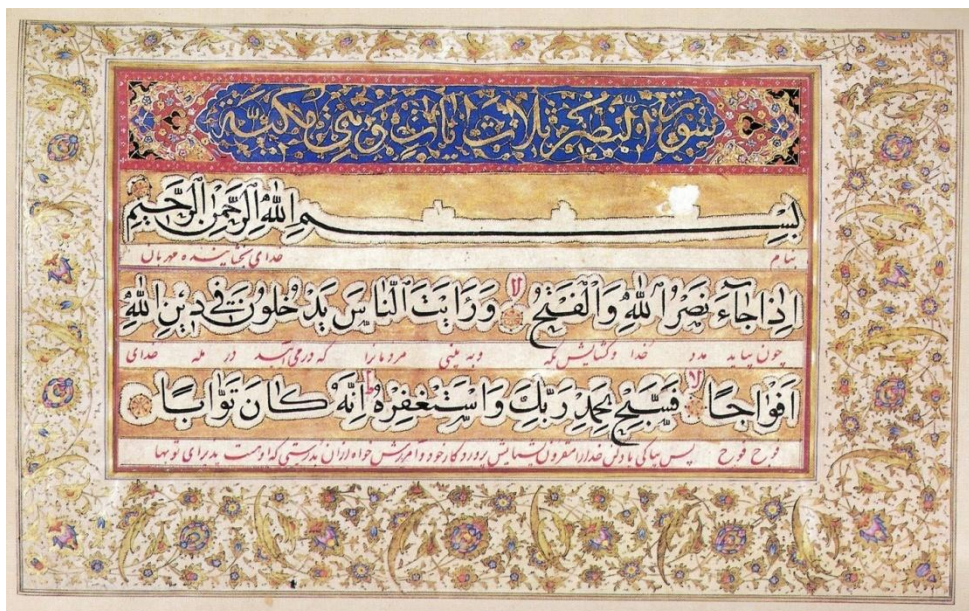 سورة النصر ثلاث ایات وهی مکیة
بِسْمِ اللهِ الرَّحْمٰنِ الرَّحِيمِ
بنام خدای بخشاینده مهربان
اِذَا جَآءَ نَصْرُ اللهِ وَالْفَتْحُ لا وَرَاَيْتَ النَّاسَ يَدْخُلُونَ فِي دِيْنِ اللهِ
چون بیاید مدد خدا و گشایش مکه و به بینی مردمانرا که درمی آیند در مله خدای
اَفْوَاجًا لا فَسَبِّحْ بِحَمْدِ رَبِّكَ وَاسْتَغْفِرْهُ ط اِنَّهُ كَانَ تَوَّابًا
فوج فوج پس بپاکی یاد کن خدا را مقرون بستایش پروردکار خود و آمرزش خواه ازان بدرستی که او هست پذیرای توبها